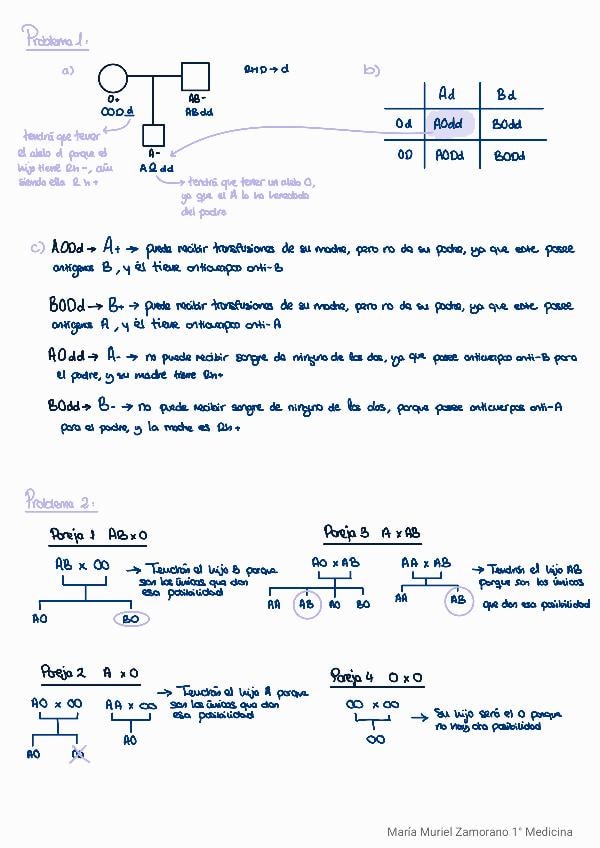 Problema 1:
a)
RHD → d
b)
O+
OODd
AB-
ABdd
A-
AOdd
tendrá que tener
el alelo d porque el
hijo tiene Rh-, aún
siendo ella Rh+
tendrá que tener un alelo O,
ya que el A lo ha heredado
del padre
Ad Bd
Od AOdd BOdd
OD AODd BODd
c) AODd → A+ → puede recibir transfusiones de su madre, pero no de su padre, ya que este posee
antígenos B, y él tiene anticuerpos anti-B
BODd → B+ → puede recibir transfusiones de su madre, pero no de su padre, ya que este posee
antígenos A, y él tiene anticuerpos anti-A
AOdd → A- → no puede recibir sangre de ninguno de los dos, ya que posee anticuerpos anti-B para
el padre, y su madre tiene Rh+
BOdd → B- → no puede recibir sangre de ninguno de los dos, porque posee anticuerpos anti-A
para el padre, y la madre es Rh+
Problema 2:
Pareja 1 ABxO
AB x OO
AO BO
→ Tendrán el hijo B porque
son los únicos que dan
esa posibilidad
Pareja 3 A x AB
AO x AB
AA AB AO BO
AA x AB
AA AB
→ Tendrán el hijo AB
porque son los únicos
que dan esa posibilidad
Pareja 2 A x O
AO x OO
AO OO
AA x OO
AO
→ Tendrán el hijo A porque
son los únicos que dan
esa posibilidad
Pareja 4 O x O
OO x OO
OO
→ Su hijo será el O porque
no hay otra posibilidad
María Muriel Zamorano 1° Medicina